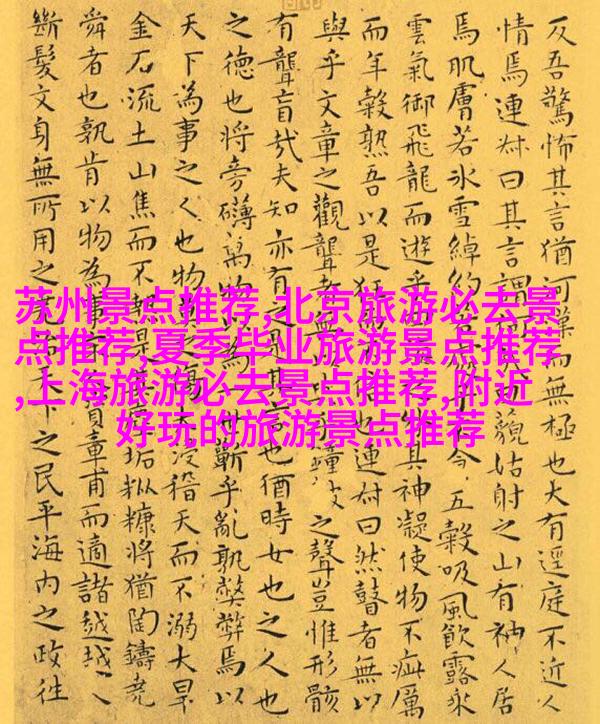 苏州景点推荐,北京旅游必去景
点推荐,夏季毕业旅游景点推荐
,上海旅游必去景点推荐,附近
好玩的旅游景点推荐
反吾驚怖其言猶河漢而無極也大有逕庭不近人
情焉連叔曰其言謂藐姑射之山有神人居
焉肌膚若冰雪綽約五穀吸風飲露乘
雲氣御飛龍而遊乎其神凝使物不疵厲
而年穀熟吾以是狂也連叔曰然瞽者無以
與乎文章之觀聾者無以之聲豈惟形骸
有聾盲哉夫知亦有之是其也猶時女也之人也
之德也將旁礴萬物以為一蘄乎亂孰弊弊焉以
天下為事之人也物莫之傷大浸稽天而不溺大旱
金石流土山焦而不熱是垢粃糠將猶陶鑄堯
舜者也孰肯以物為事資章甫而適諸越越人
斷髮文身無所用之天下之民平海內之政往